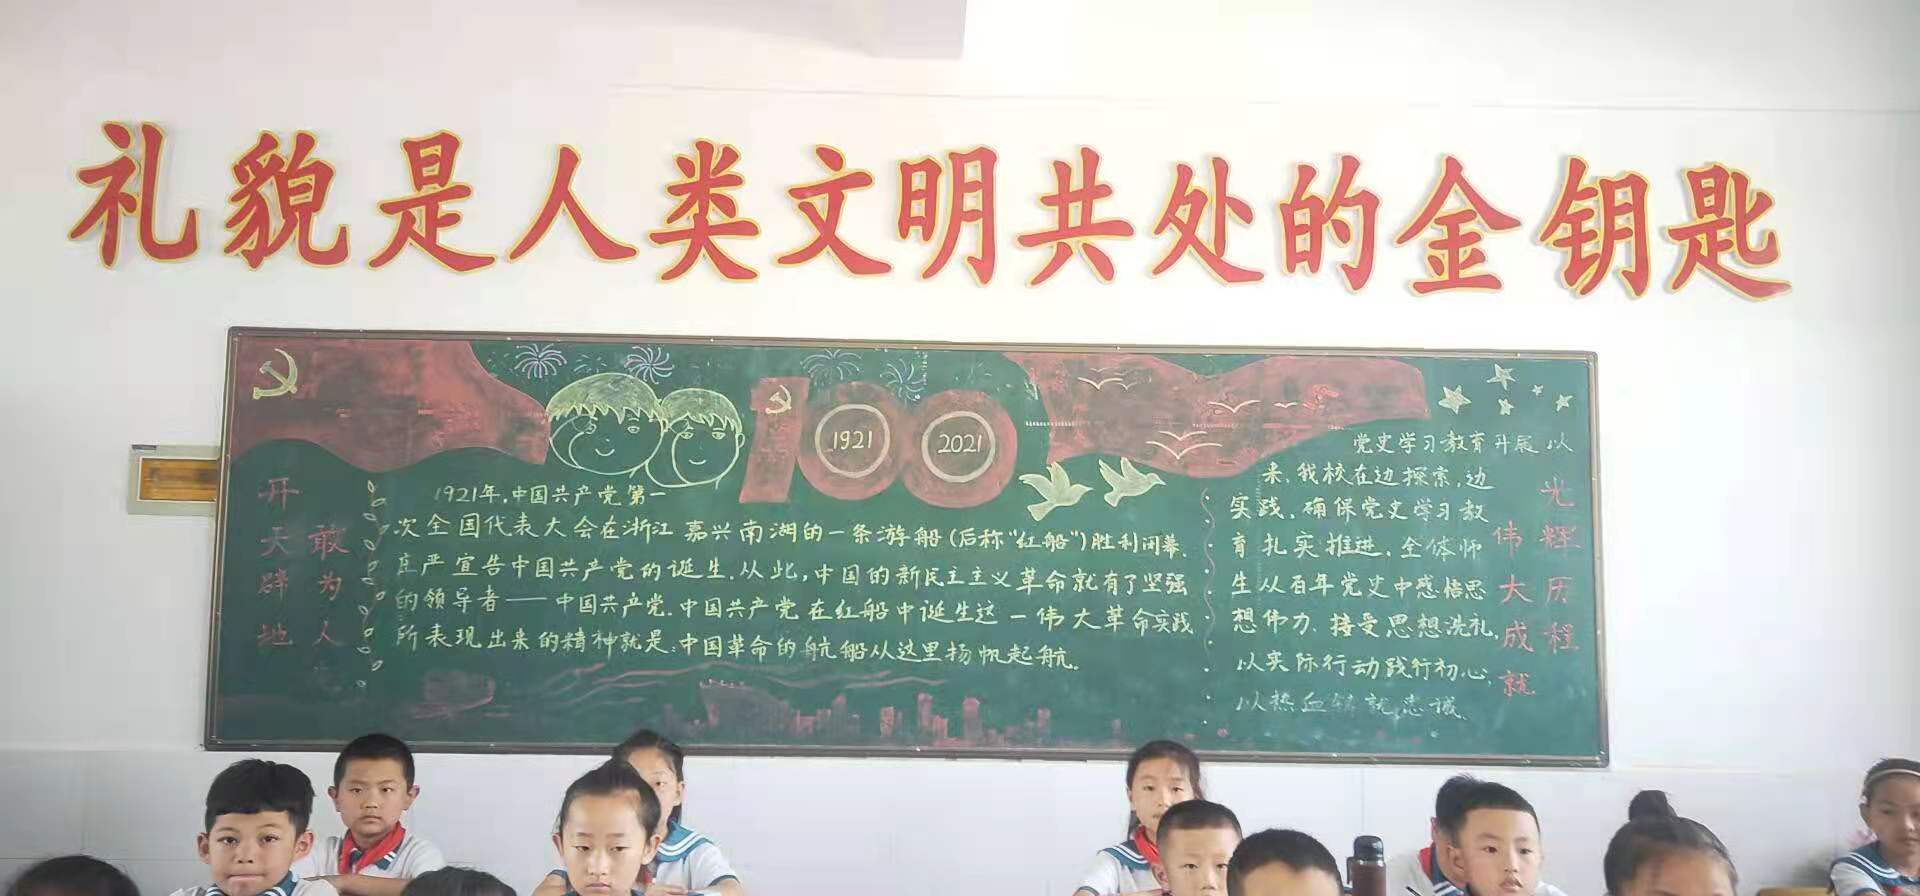 礼貌是人类文明共处的金钥匙
1921
2021
开天辟地
敢为人
1921年,中国共产党第一
次全国代表大会在浙江嘉兴南湖的一条游船(后称"红船")胜利闭幕.
庄严宣告中国共产党的诞生.从此,中国的新民主主义革命就有了坚强
的领导者——中国共产党.中国共产党在红船中诞生这一伟大革命实践
所表现出来的精神就是:中国革命的航船从这里扬帆起航.
党史学习教育开展以
来,我校在边探索,边
实践,确保党史学习教
育扎实推进,全体师
生从百年党史中感悟思
想伟力,接受思想洗礼,
以实际行动践行初心,
以热血铸就忠诚.
光辉历程
伟大成就